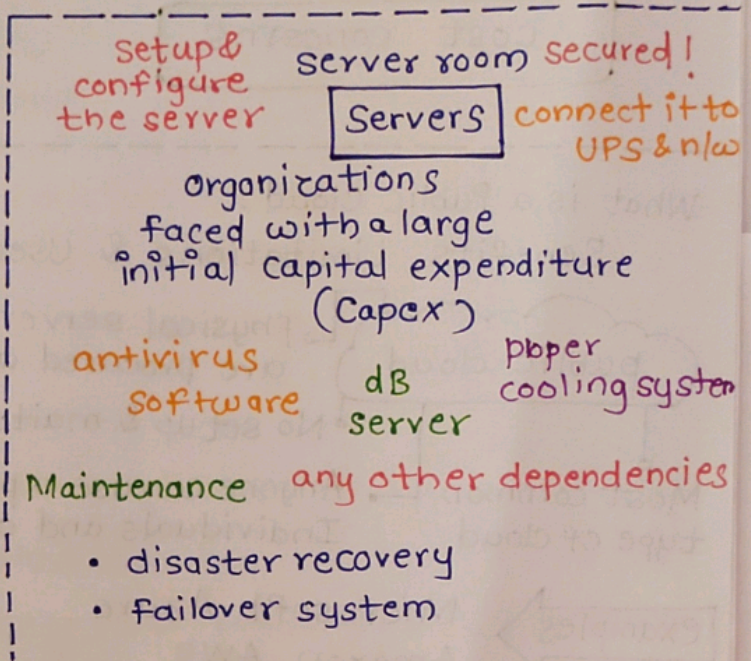 setup&
configure
the server
server room secured!
Servers
connect it to
UPS & n/w
organizations
faced with a large
initial capital expenditure
(Capex)
antivirus
software
dB
server
proper
cooling system
Maintenance
any other dependencies
• disaster recovery
• failover system